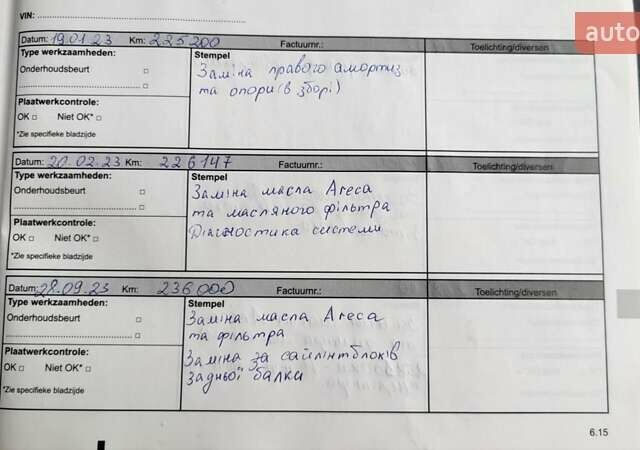 auto
VIN:
Datum: 19.01.23 Km: 225200 Factuurnr.: Toelichting/diversen
Type werkzaamheden:
Onderhoudsbeurt
Plaatwerkcontrole:
OK Niet OK*
*Zie specifieke bladzijde
Stempel
Заміна правого амортиз
та опори (в зборі)
Datum: 20.02.23 Km: 226147 Factuurnr.: Toelichting/diversen
Type werkzaamheden:
Onderhoudsbeurt
Plaatwerkcontrole:
OK Niet OK*
*Zie specifieke bladzijde
Stempel
Заміна масла Areca
та масляного фільтра
Діагностика системи
Datum: 28.09.23 Km: 236000 Factuurnr.: Toelichting/diversen
Type werkzaamheden:
Onderhoudsbeurt
Plaatwerkcontrole:
OK Niet OK*
*Zie specifieke bladzijde
Stempel
Заміна масла Areca
та фільтра
Заміна за сайлінтблоків
задньої балки
6.15